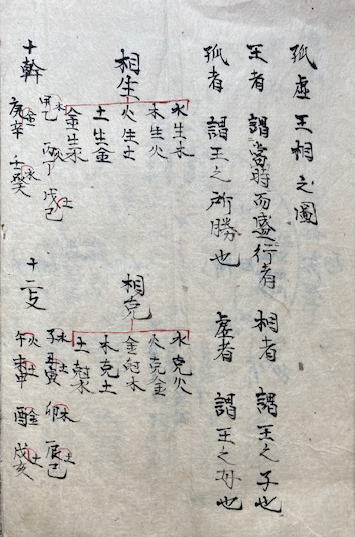 孤虚王相之圖
王者 謂當時而盛行者 相者 謂王之子也
孤者 謂王之所勝也 虚者 謂王之母也
相生
水生木
木生火
火生土
土生金
金生水
相克
水克火
火克金
金尅木
木克土
土尅水
十幹
甲乙木 丙丁火 戊己土
庚辛金 壬癸水
十二支
子水丑土寅 卯木 辰土巳
午火未土申 酉金 戌土亥